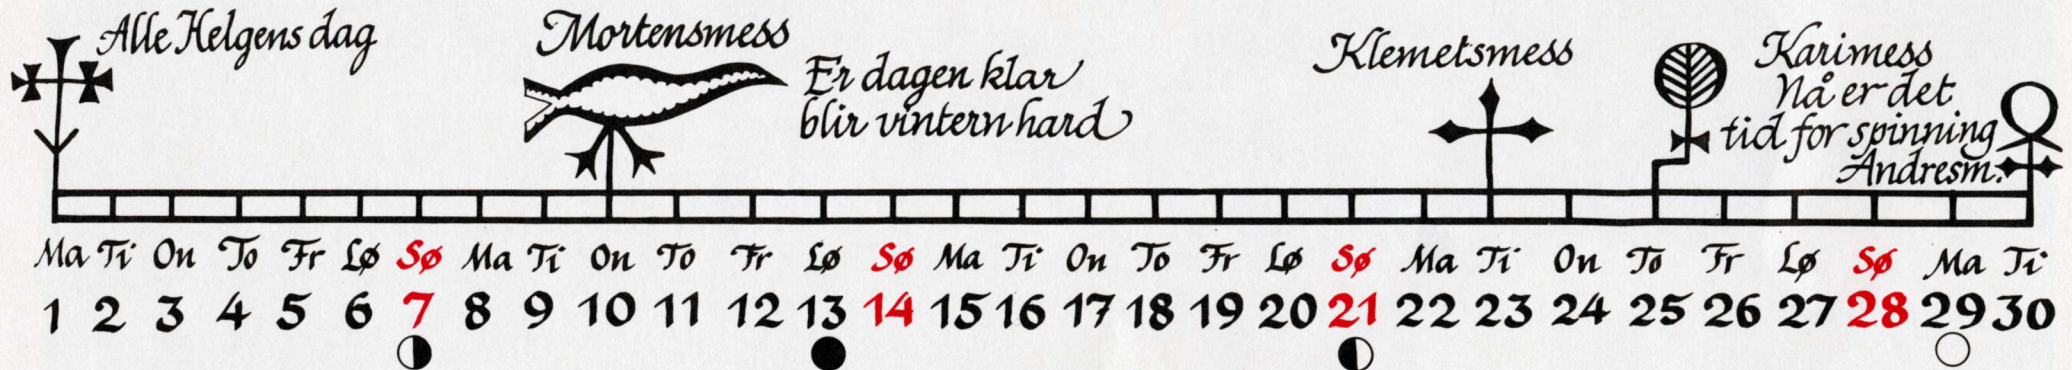 Alle Helgens dag
Mortensmess
Er dagen klar
blir vintern hard
Klemetsmess
Karimess
Nå er det
tid for spinning
Andresm.
Ma Ti On To Fr Lø Sø Ma Ti On To Fr Lø Sø Ma Ti On To Fr Lø Sø Ma Ti On To Fr Lø Sø Ma Ti
1 2 3 4 5 6 7 8 9 10 11 12 13 14 15 16 17 18 19 20 21 22 23 24 25 26 27 28 29 30